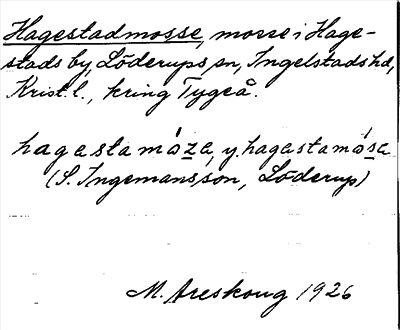 Hagestadmosse, mosse i Hage-
stads by, Löderups sn, Ingelstads hd,
Krist. l., kring Tygeå.
hagestamóze, y. hagestamósa
(S. Ingemansson, Löderup)
M. Areskoug 1926